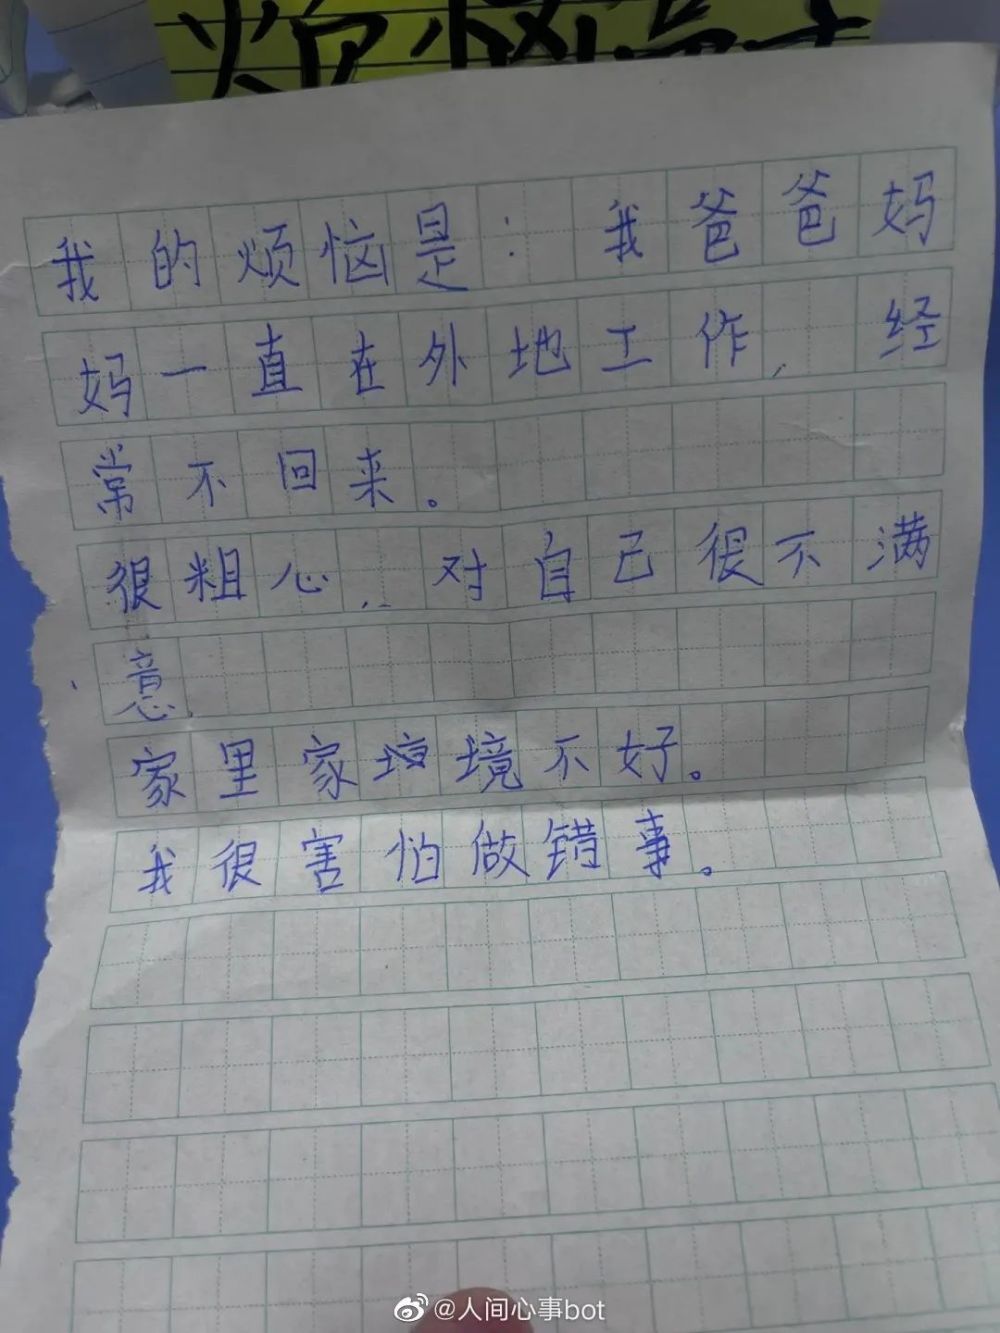 我的烦恼是：我爸爸妈
妈一直在外地工作，经
常不回来。
很粗心，对自己很不满
意
家里家境不好。
我很害怕做错事。
@人间心事bot